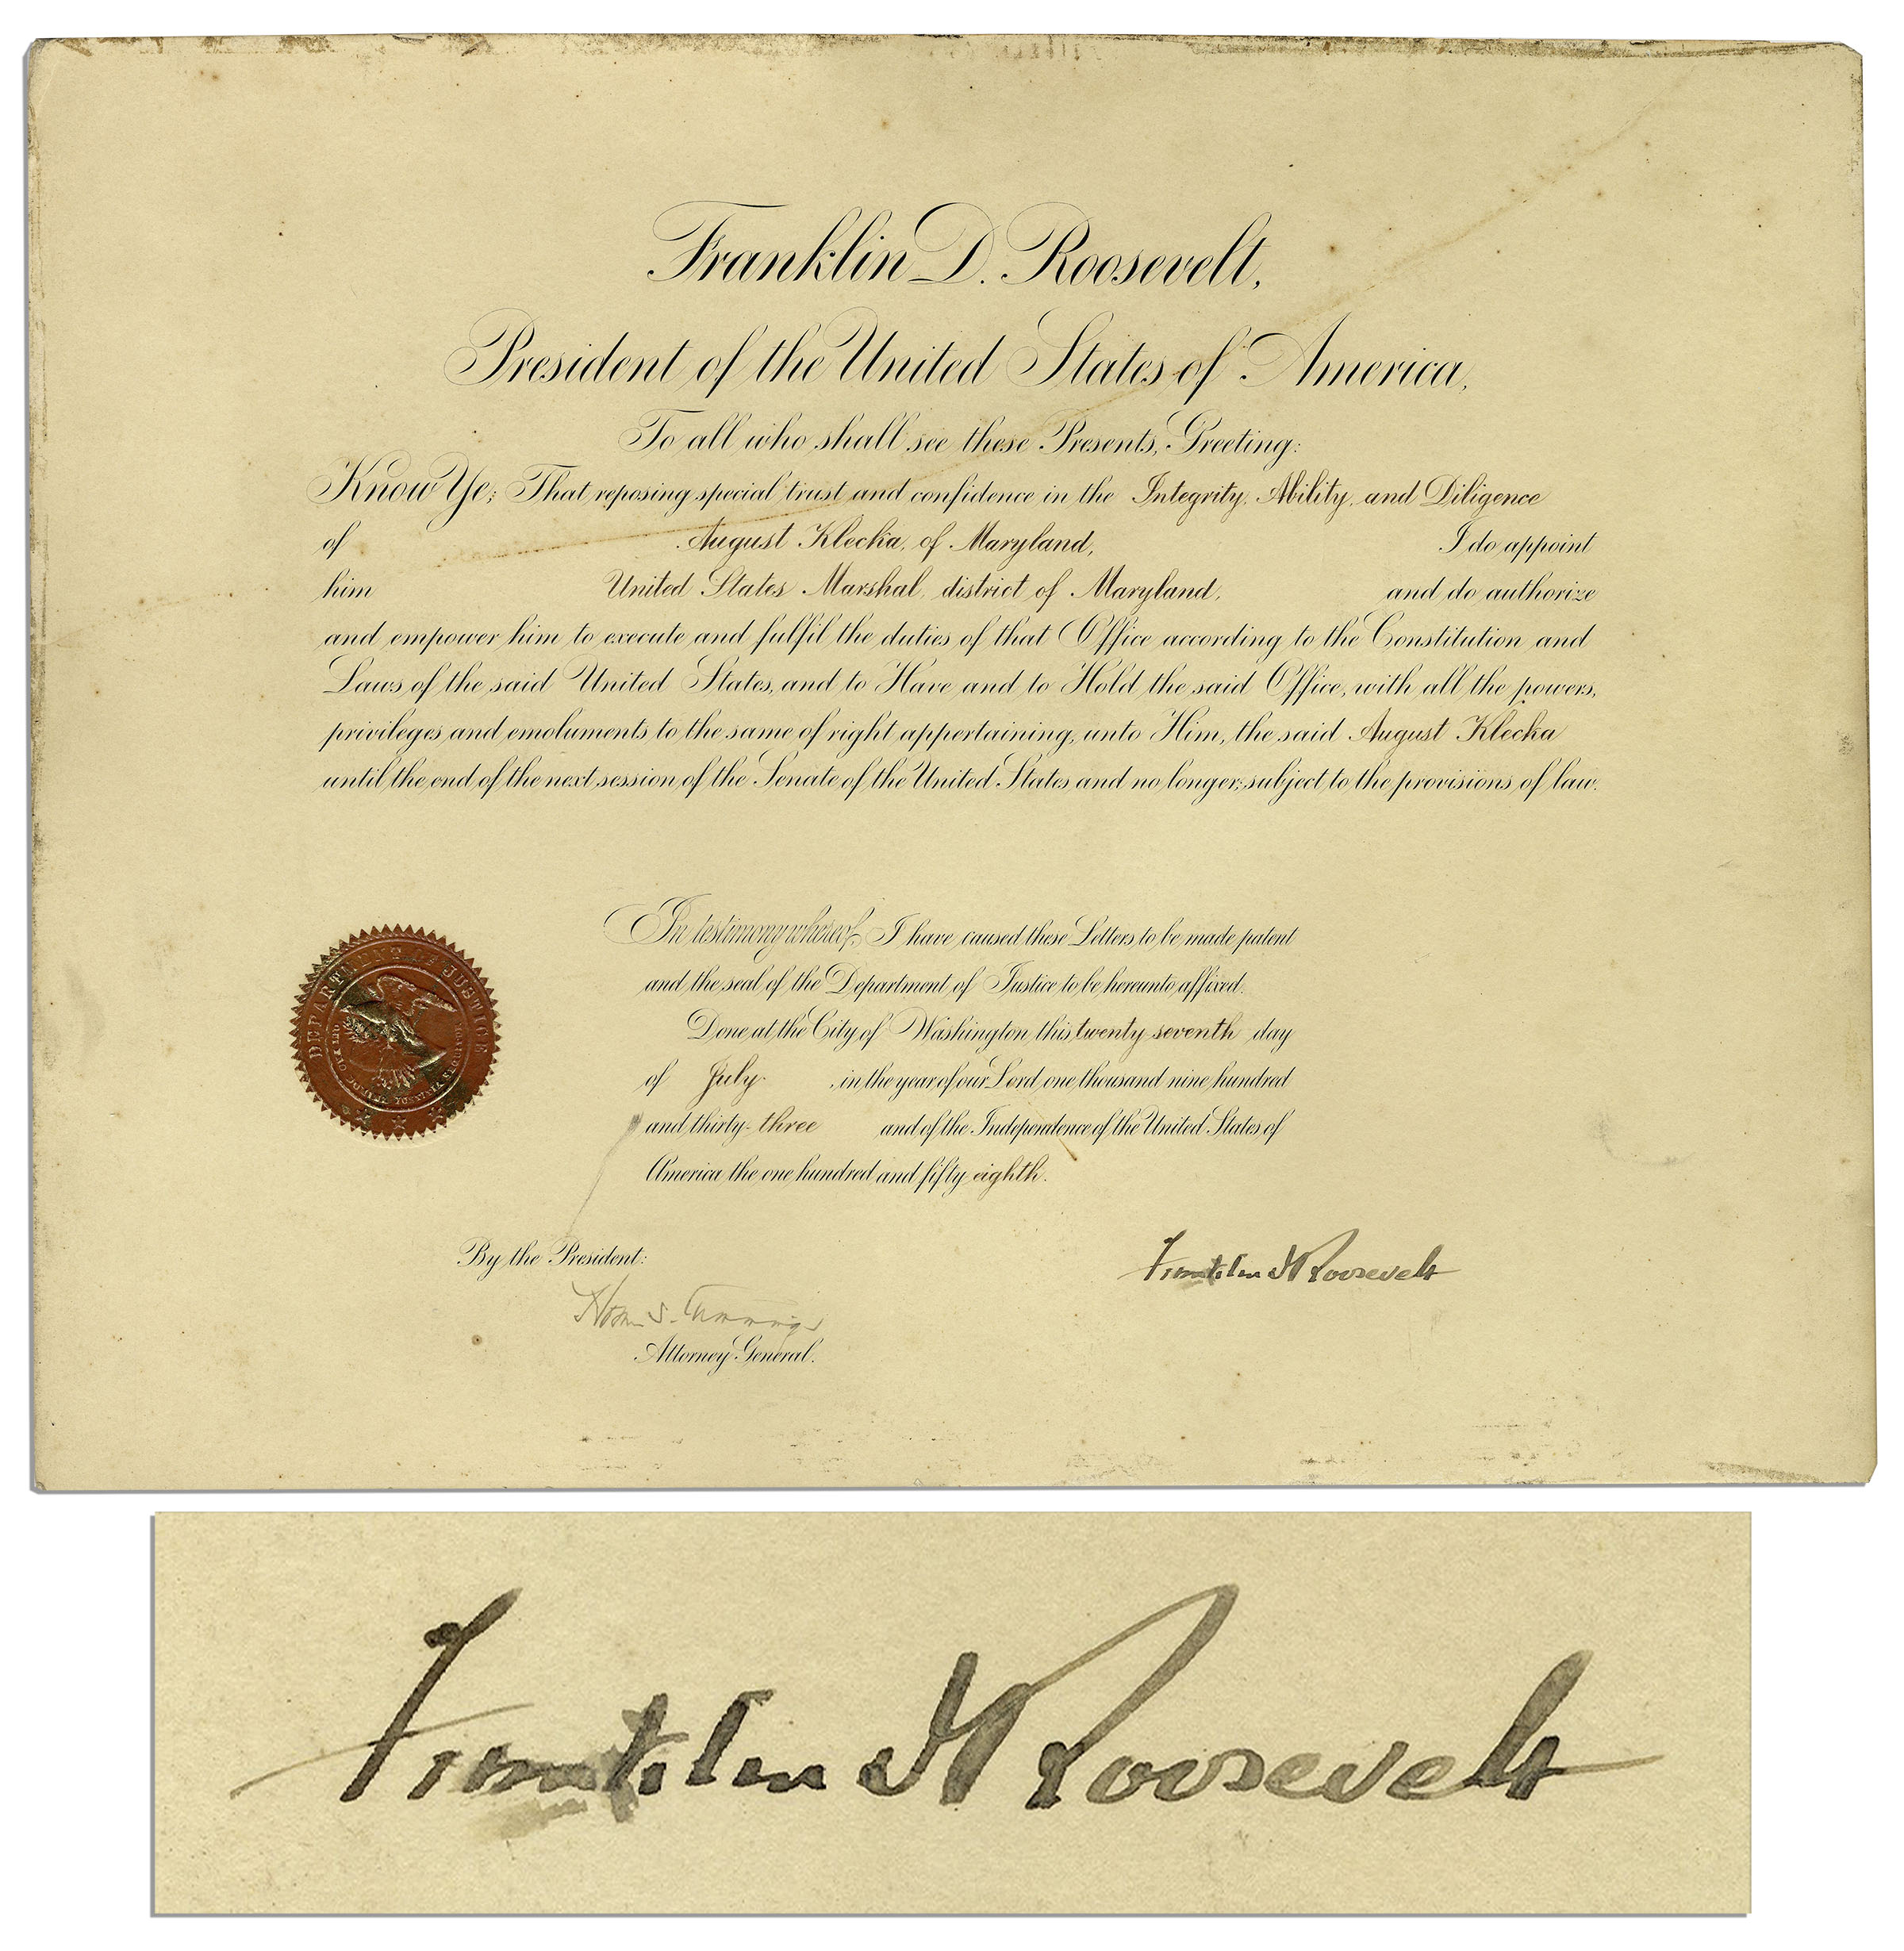 Franklin D. Roosevelt,
President of the United States of America,
To all who shall see these Presents, Greeting:
Know Ye; That reposing special trust and confidence in the Integrity, Ability, and Diligence
of August Klecka, of Maryland, I do appoint
him United States Marshal, district of Maryland, and do authorize
and empower him to execute and fulfil the duties of that Office according to the Constitution and
Laws of the said United States, and to Have and to Hold the said Office, with all the powers,
privileges and emoluments to the same of right appertaining, unto Him, the said August Klecka
until the end of the next session of the Senate of the United States and no longer; subject to the provisions of law.
In testimony whereof, I have caused these Letters to be made patent
and the seal of the Department of Justice to be hereunto affixed.
Done at the City of Washington this twenty seventh day
of July, in the year of our Lord one thousand nine hundred
and thirty-three and of the Independence of the United States of
America the one hundred and fifty-eighth.
DEPARTMENT OF JUSTICE
By the President:
Franklin D Roosevelt
Homer S. Cummings
Attorney General.
Franklin D Roosevelt